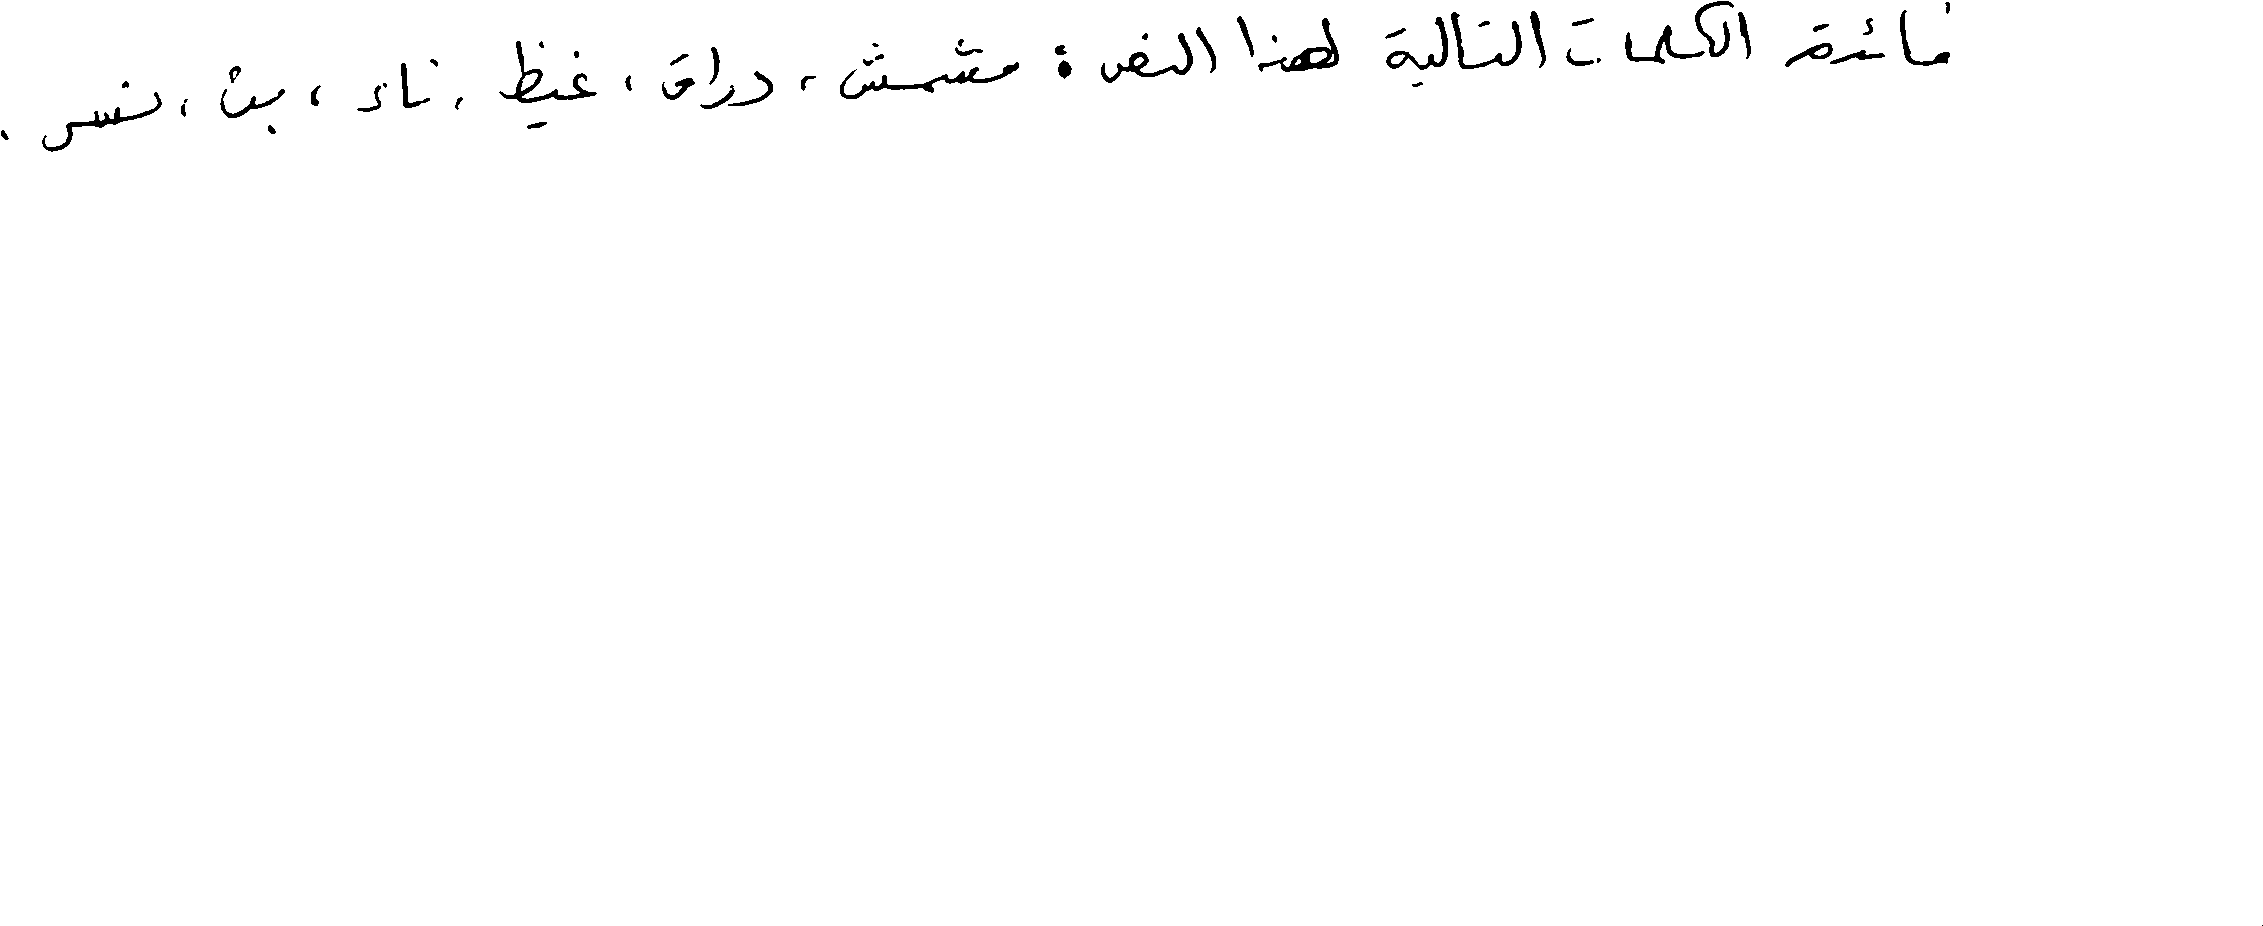 فائدة الكلمات التالية لهذا النص: مشمش، دراق، غيظ، ناء، بين، نفس.